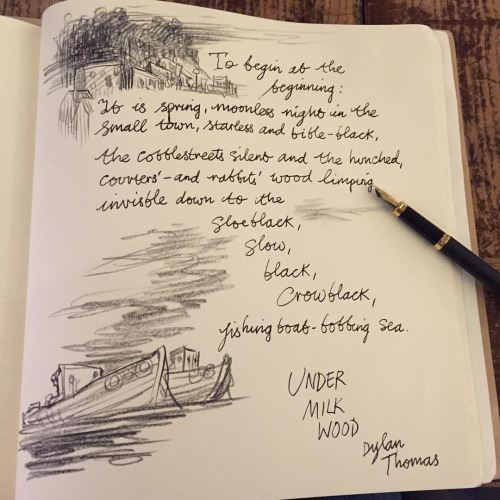 To begin at the
beginning:
It is spring, moonless night in the
small town, starless and bible-black,
the cobblestreets silent and the hunched,
courters'-and rabbits' wood limping
invisble down to the
sloeblack,
slow,
black,
Crowblack,
fishingboat-bobbing sea.
UNDER
MILK
WOOD
Dylan
Thomas